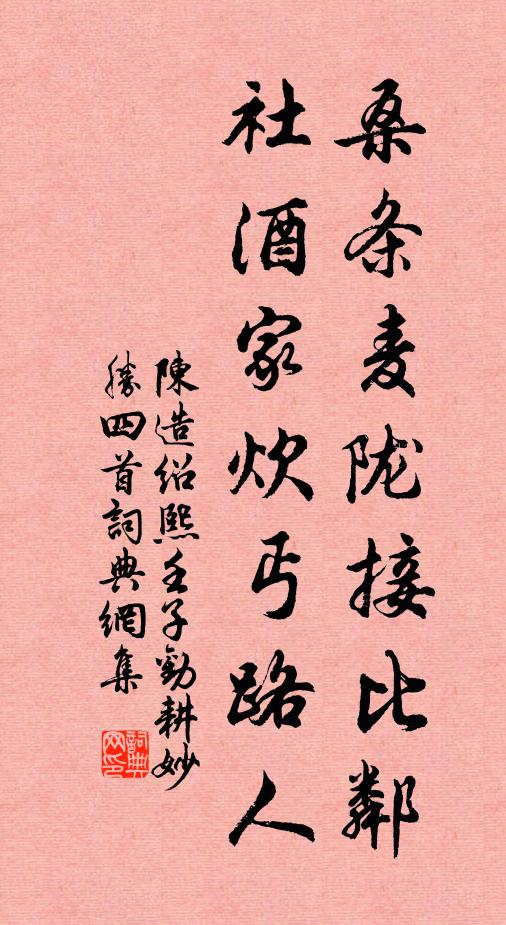 桑条麦陇接比鄰
社酒家炊丐路人
陳造绍熙壬子勸耕妙
勝四首詞典網集
詞典网印